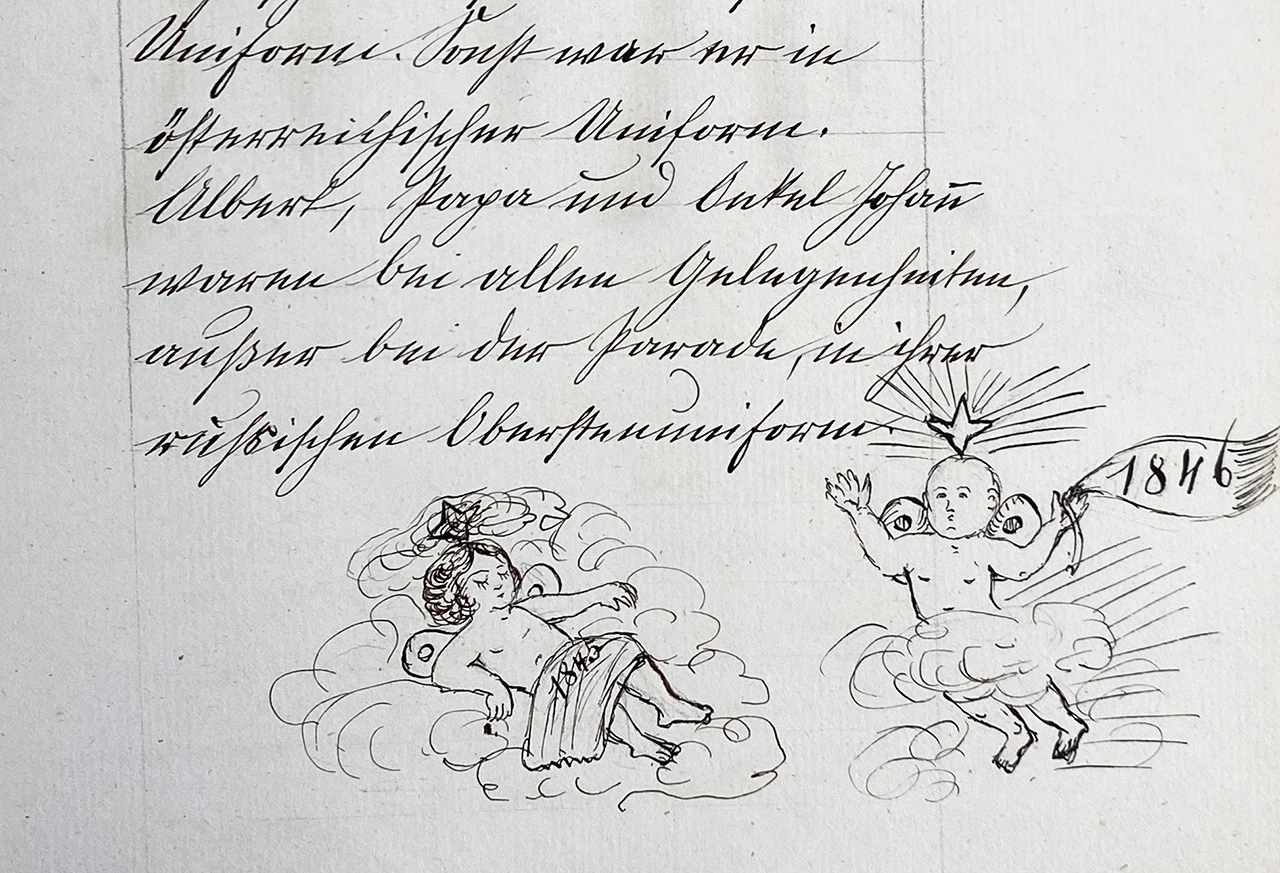 Uniform. Sonst war er in
österreichischer Uniform.
Albert, Papa und Onkel Johan̅
waren bei allen Gelegenheiten,
außer bei der Parade, in ihrer
russischen Oberstenuniform.
1846
1845